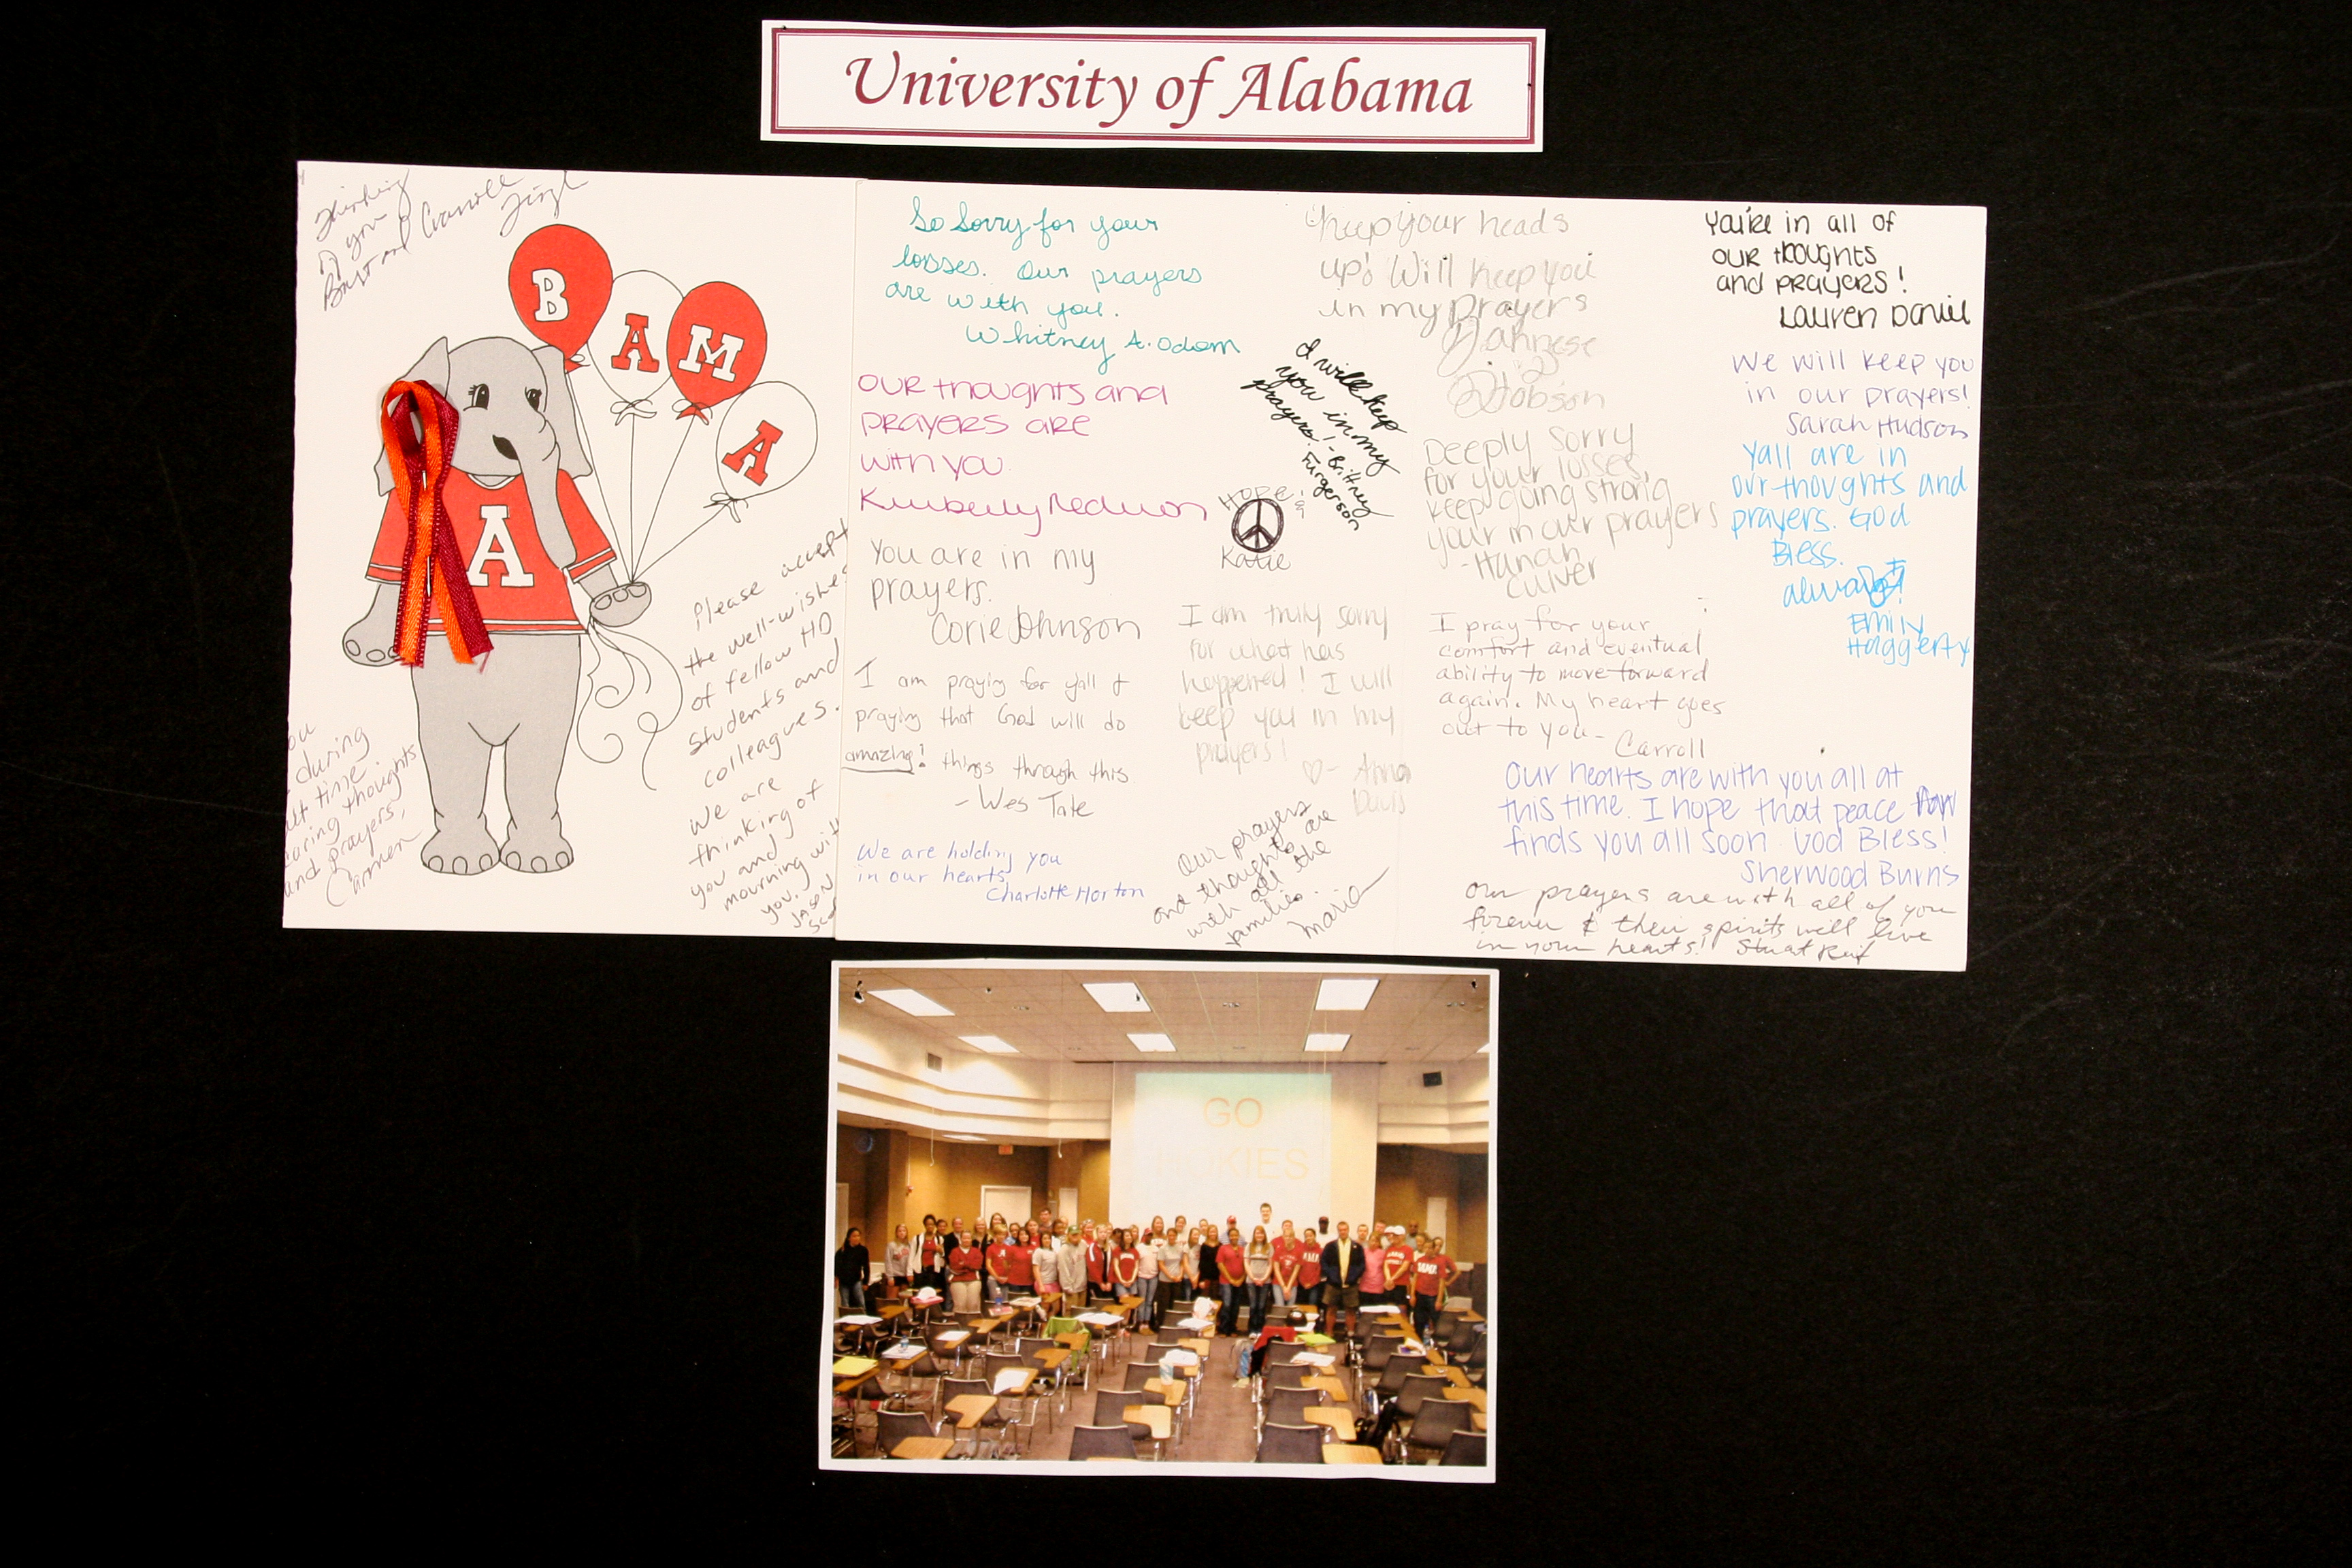 University of Alabama
Thinking
of you
and Carroll
B
A
M
A
A
Please accept
the well-wishes
of fellow HD
students and
colleagues.
We are
thinking of
you and
mourning with
you.
Jason
during
time.
caring thoughts
and prayers,
Carmen
So Sorry for your
losses. Our prayers
are with you.
Whitney A. Odom
Our thoughts and
prayers are
with you.
Kimberly
You are in my
prayers.
Corie Johnson
I am praying for y'all &
praying that God will do
amazing! things through this
- Wes Tate
We are holding you
in our hearts
Charlotte Horton
Keep your heads
up! Will keep you
in my prayers
Dobson
I will keep
you in my
prayers! - Brittney
Furgerson
Hope &
Katie
I am truly sorry
for what has
happened! I will
keep you in my
prayers!
♡- Anna
Davis
Our prayers
and thoughts are
with all the
families.
Maria
Deeply sorry
for your losses,
keep going strong
your in our prayers
- Hanah
Culver
I pray for your
comfort and eventual
ability to move forward
again. My heart goes
out to you-
Carroll
You're in all of
our thoughts
and prayers!
Lauren Daniel
We will keep you
in our prayers!
Sarah Hudson
Yall are in
our thoughts and
prayers. God
Bless.
always!
Emily
Haggerty
Our hearts are with you all at
this time. I hope that peace
finds you all soon. God Bless!
Sherwood Burns
Our prayers are with all of you
forever & their spirits will live
in your hearts! Stuart
GO
HOKIES